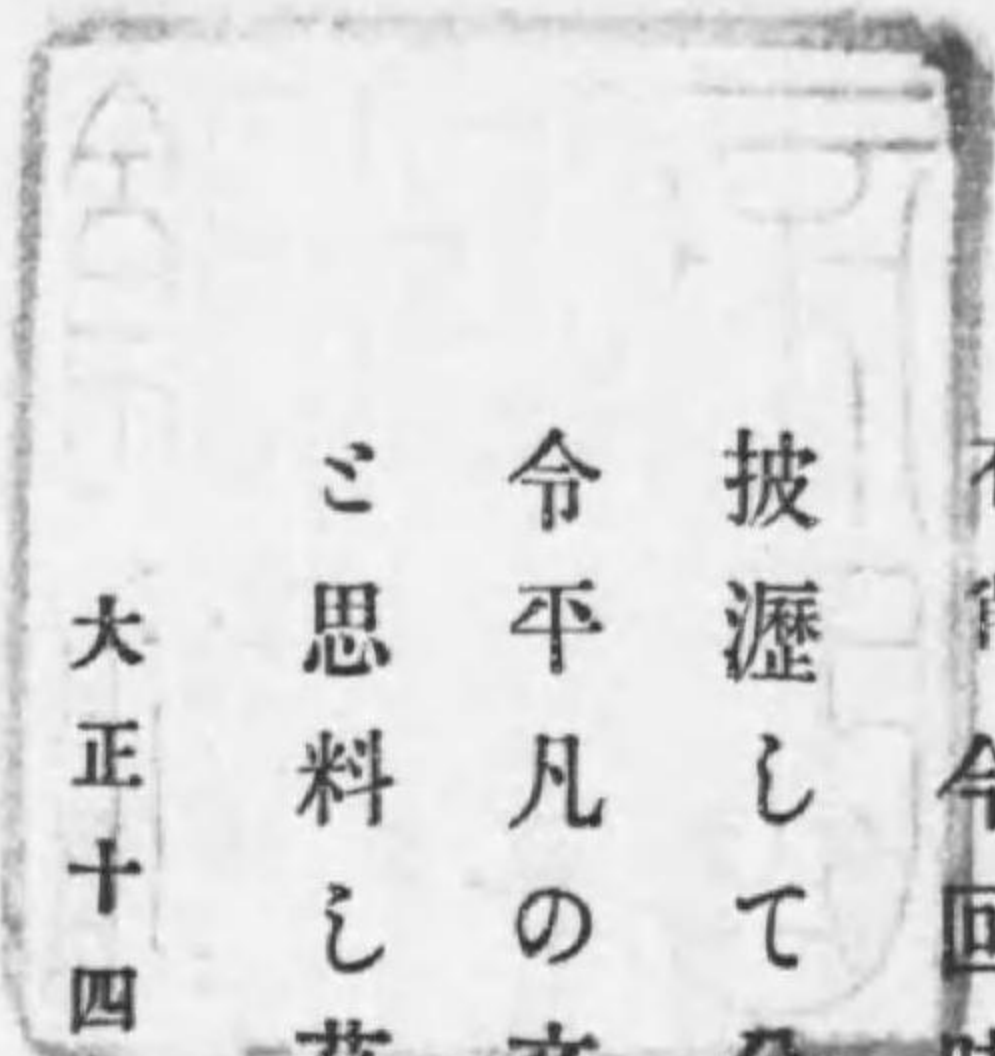 今回
披瀝して
令平凡の
ミ思料し
大正十四